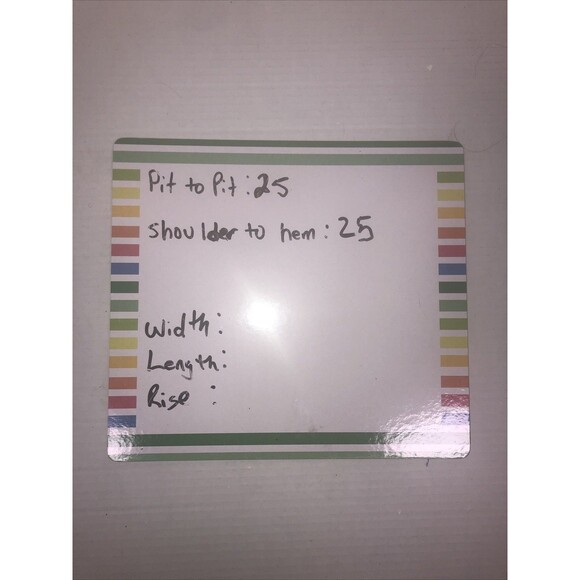 Pit to Pit: 25
shoulder to hem: 25
Width:
Length:
Rise :